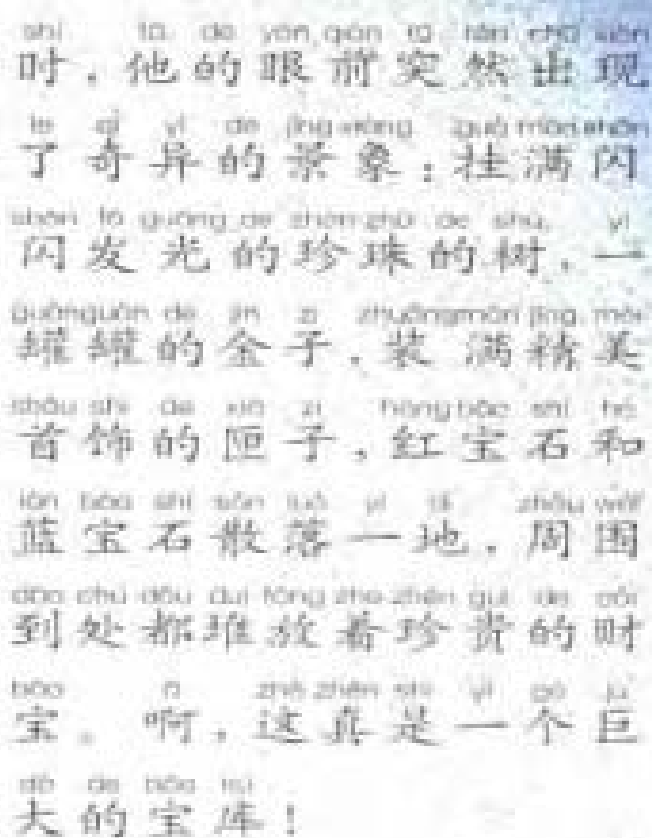 shí tā de yǎn qián tū rán chū xiàn
时，他的眼前突然出现
le qí yì de jǐng xiàng guà mǎn shǎn
了奇异的景象：挂满闪
shǎn fā guāng de zhēn zhū de shù yì
闪发光的珍珠的树，一
guàn guàn de jīn zi zhuāng mǎn jīng měi
罐罐的金子，装满精美
shǒu shì de xiá zi hóng bǎo shí hé
首饰的匣子，红宝石和
lán bǎo shí sàn luò yí dì zhōu wéi
蓝宝石散落一地，周围
dào chù dōu duī fàng zhe zhēn guì de cái
到处都堆放着珍贵的财
bǎo ā zhè zhēn shì yí gè jù
宝。啊，这真是一个巨
dà de bǎo kù
大的宝库！